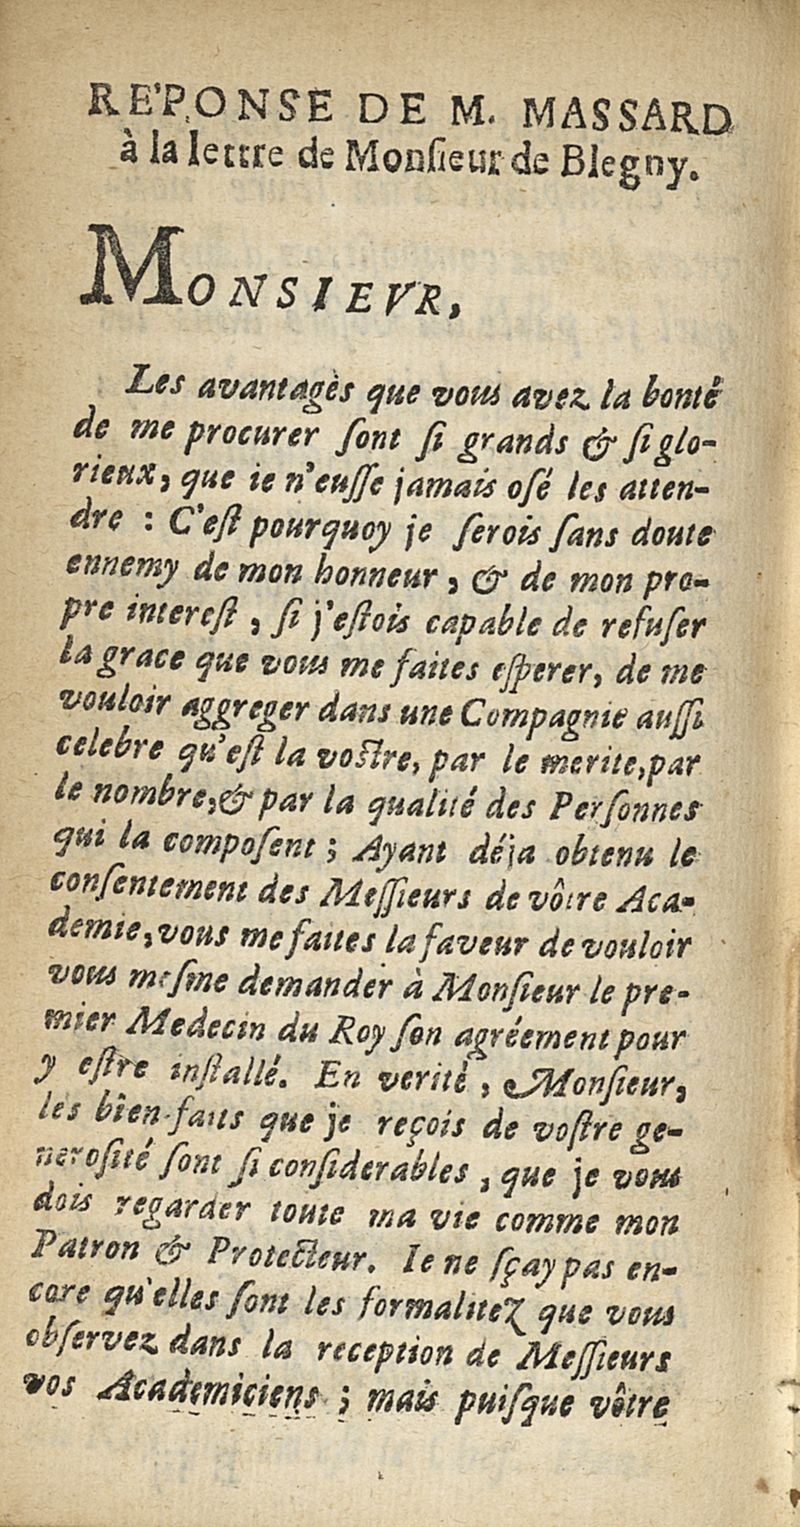 RE'PONSE DE M. MASSARD
à la lettre de Monſieur de Blegny.
MONSIEVR,
Les avantagès que vous avez la bonté
de me procurer ſont ſi grands & ſi glo-
rieux, que ie n'euſſe jamais oſé les atten-
dre : C'eſt pourquoy je ſerois ſans doute
ennemy de mon honneur, & de mon pro-
pre intereſt, ſi j'eſtois capable de refuſer
la grace que vous me faites eſperer, de me
vouloir aggreger dans une Compagnie auſſi
celebre qu'eſt la voſtre, par le merite, par
le nombre, & par la qualité des Perſonnes
qui la compoſent ; Ayant déja obtenu le
conſentement des Meſſieurs de vôtre Aca-
demie, vous me faites la faveur de vouloir
vous meſme demander à Monſieur le pre-
mier Medecin du Roy ſon agréement pour
y eſtre inſtallé. En verité, Monſieur,
les bien-faits que je reçois de voſtre ge-
neroſité ſont ſi conſiderables, que je vous
dois regarder toute ma vie comme mon
Patron & Protecteur. Ie ne ſçay pas en-
core qu'elles ſont les formalitez que vous
obſervez dans la reception de Meſſieurs
vos Academiciens ; mais puiſque vôtre